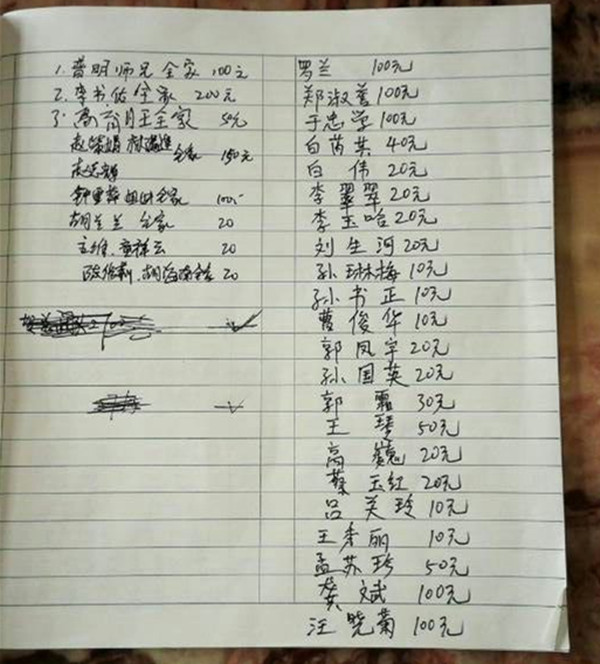 1. 普明师兄 全家 100元
2. 李书佑全家 200元
3. 高育月王全家 50元
全家 150元
全家 100-
胡兰兰 全家 20
王维、童祥云 20
全家 20
罗兰 100元
郑淑 100元
于志学 100元
白茵英 40元
白 伟 20元
李翠翠 20元
李玉哈 20元
刘生河 20元
孙琳梅 10元
孙书正 10元
曹俊华 10元
郭凤宇 20元
孙国英 20元
郭 霜 30元
王 琴 50元
高 巍 20元
蔡玉红 20元
吕美玲 10元
王秀丽 10元
孟苏珍 50元
龚斌 100元
汪晓菊 100元